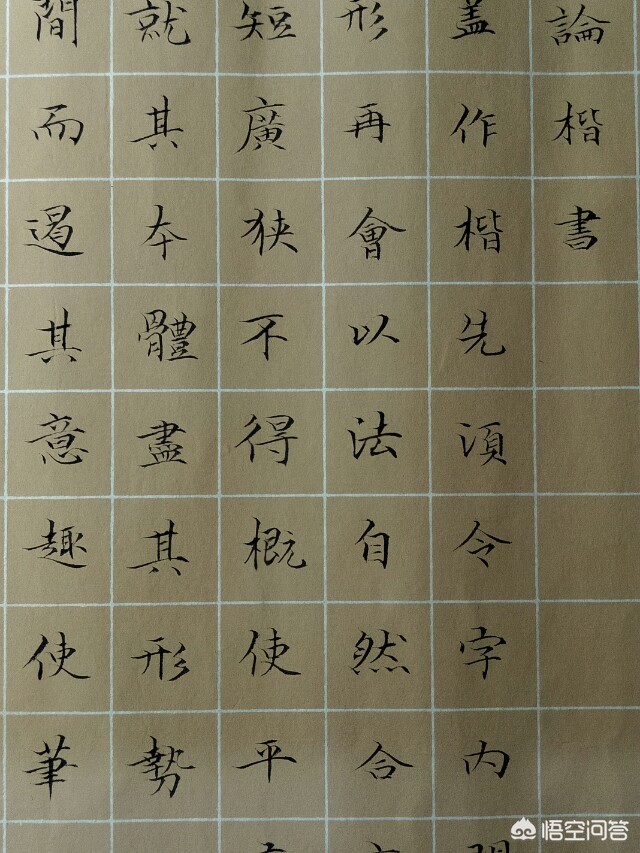 論楷書
蓋作楷先須令字內
形再會以法自然合
短廣狹不得概使平
就其本體盡其形勢
間而遏其意趣使筆
悟空问答